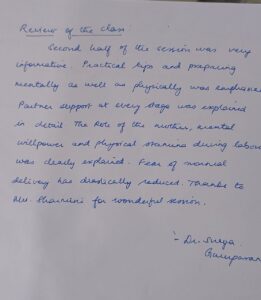 Review of the class
Second half of the session was very
informative. Practical tips and preparing
mentally as well as physically was emphasised
Partner support at every stage was explained
in detail The Role of the mother, mental
willpower and physical stamina during labour
was clearly explained. Fear of normal
delivery has drastically reduced. Thanks to
for wonderful session.
:- Dr.